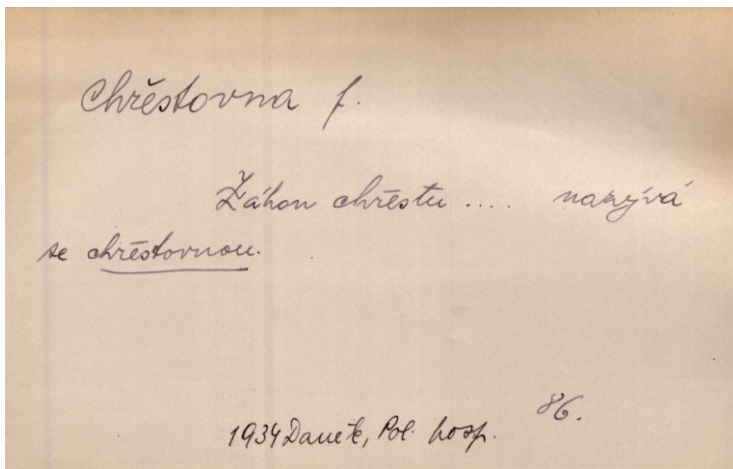 Chřěstovna f.
Záhon chřěstu .... nazývá
se chřěstovnou.
86.
1934 Daněk, Pol. hosp.